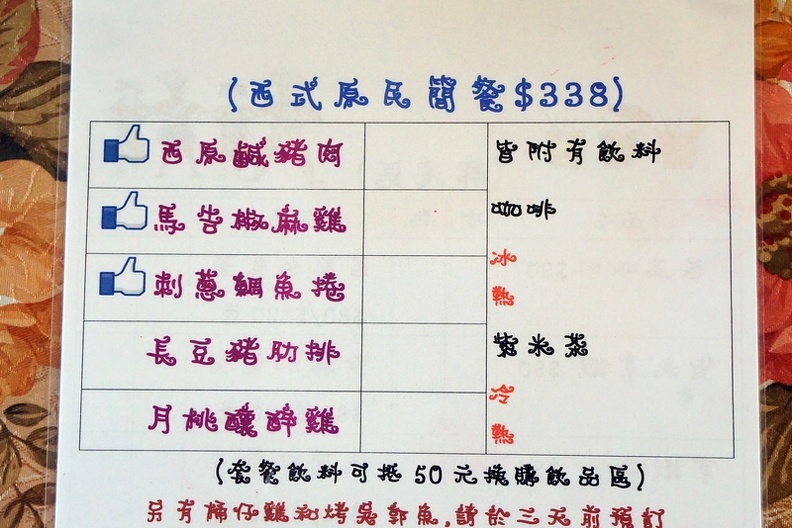 (西式原民簡餐$338)
西原鹹豬肉
馬告椒麻雞
刺蔥鯛魚捲
長豆豬肋排
月桃釀醉雞
皆附有飲料
咖啡
冰
熱
紫米茶
冷
熱
(套餐飲料可抵50元換購飲品區)
另有桶仔雞和烤吳郭魚,請於三天前預訂